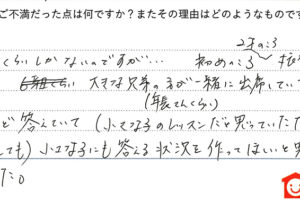 ご不満だった点は何ですか?またその理由はどのようなもので
2年のころ
くらいしかないのですが… 初めのころ 振
大きな兄弟の子が一緒に出席してい
(年長さんくらい)
ど答えていて (小さな子のレッスンだと思っていたた
しても) 小さな子にも答える状況を作ってほしいと思